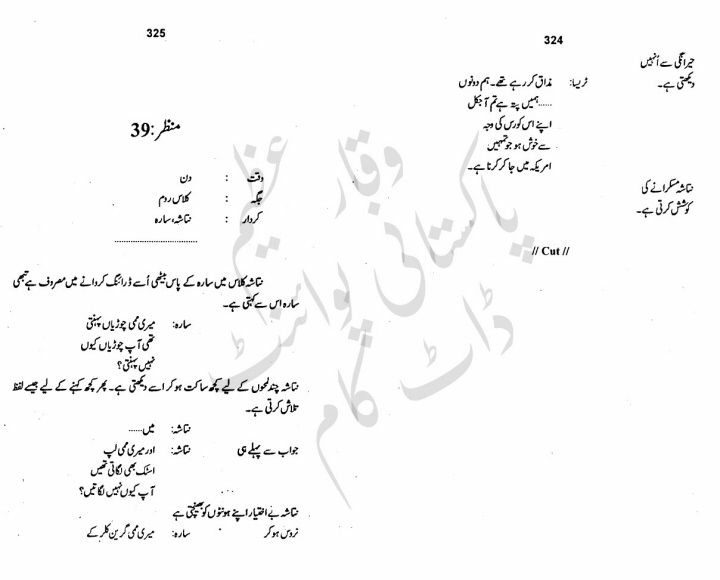 324
حیرانگی سے اُنہیں
دیکھتی ہے۔
ٹریسا: مذاق کر رہے تھے۔ ہم دونوں
......ہمیں پتہ ہے تم آجکل
اپنے اس کورس کی وجہ
سے خوش ہو جو تمہیں
امریکہ میں جا کر کرنا ہے۔
نتاشہ مسکرانے کی
کوشش کرتی ہے۔
// Cut //
325
منظر:39
وقت : دن
جگہ : کلاس روم
کردار : نتاشہ، سارہ
نتاشہ کلاس میں سارہ کے پاس بیٹھی اُسے ڈرائنگ کروانے میں مصروف ہے تبھی
سارہ اس سے کہتی ہے۔
سارہ: میری ممی چوڑیاں پہنتی
تھی آپ چوڑیاں کیوں
نہیں پہنتی؟
نتاشہ چند لمحوں کے لیے کچھ ساکت ہو کر اسے دیکھتی ہے۔ پھر کچھ کہنے کے لیے جیسے لفظ
تلاش کرتی ہے۔
نتاشہ: میں......
جواب سے پہلے ہی نتاشہ: اور میری ممی لپ
اسٹک بھی لگاتی تھیں
آپ کیوں نہیں لگاتیں؟
نتاشہ بے اختیار اپنے ہونٹوں کو بھینچتی ہے
نروس ہو کر سارہ: میری ممی گرین کلر کے
وقار عظیم
پاکستانی پوائنٹ
ڈاٹ کام